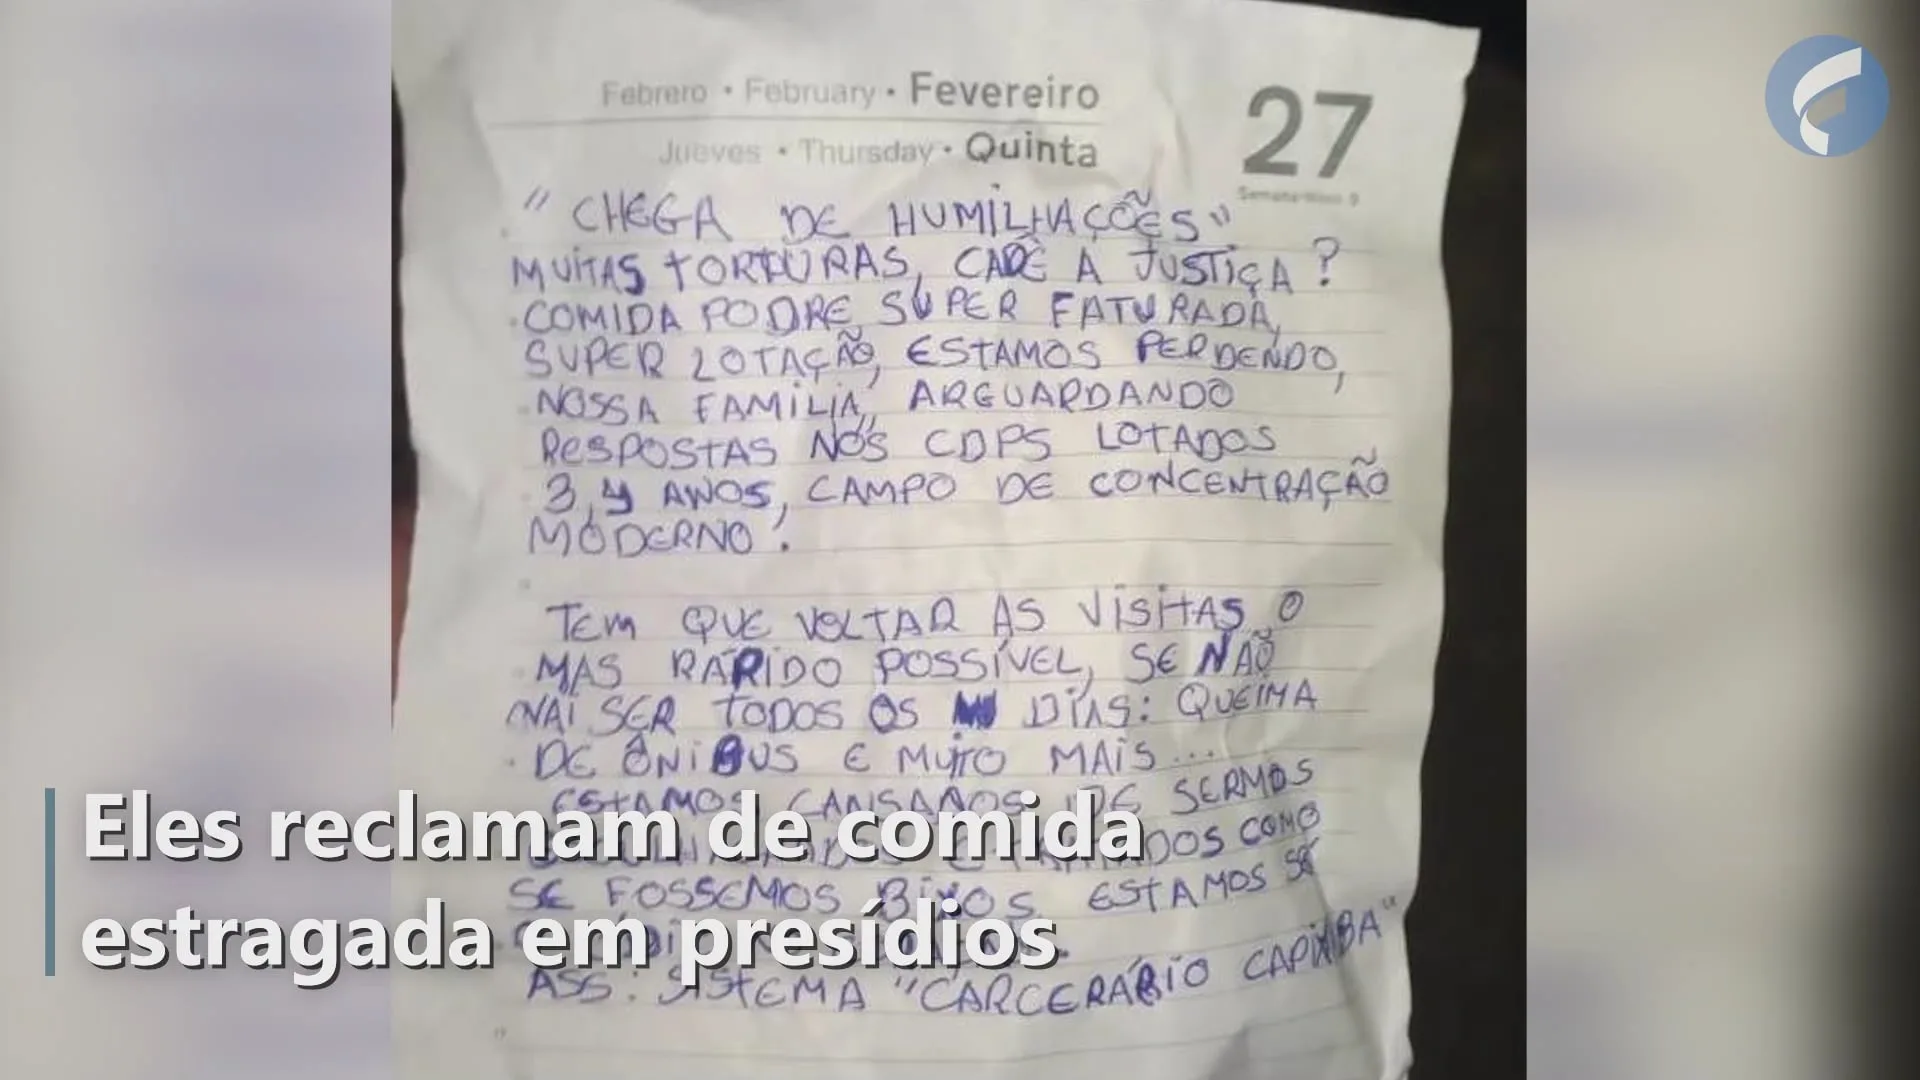 Febrero • February • Fevereiro
27
Jueves • Thursday • Quinta
"CHEGA DE HUMILHAÇÕES"
MUITAS TORTURAS, CADÊ A JUSTIÇA?
COMIDA PODRE SUPER FATURADA,
SUPER LOTAÇÃO, ESTAMOS PERDENDO,
NOSSA FAMÍLIA, ARGUARDANDO
RESPOSTAS NOS CDPS LOTADOS
3,4 ANOS, CAMPO DE CONCENTRAÇÃO
MODERNO!
TEM QUE VOLTAR AS VISITAS O
MAS RÁPIDO POSSÍVEL, SE NÃO
VAI SER TODOS OS DIAS: QUEIMA
DE ÔNIBUS E MUITO MAIS...
ESTAMOS CANSADOS DE SERMOS
TRATADOS COMO
SE FOSSEMOS BIXOS. ESTAMOS SÉ
ASS: SISTEMA "CARCERÁRIO CAPIXABA"
Eles reclamam de comida
estragada em presídios